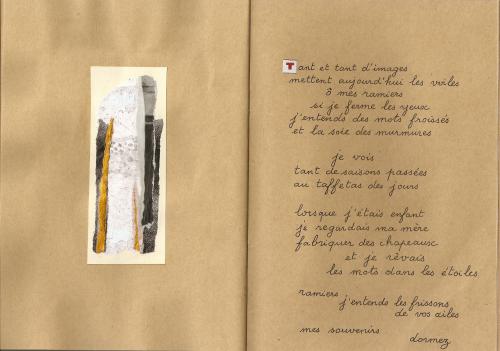 Tant et tant d'images
mettent aujourd'hui les voiles
ô mes ramiers
si je ferme les yeux
j'entends des mots froissés
et la soie des murmures
je vois
tant de saisons passées
au taffetas des jours
lorsque j'étais enfant
je regardais ma mère
fabriquer des chapeaux
et je rêvais
les mots dans les étoiles
ramiers
j'entends les frissons
de vos ailes
mes souvenirs
dormez